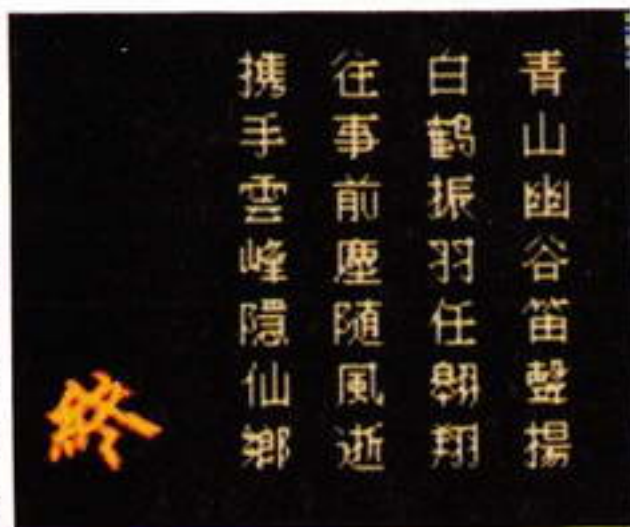 青山幽谷笛聲揚
白鶴振羽任翱翔
往事前塵隨風逝
携手雲峰隱仙鄉
終